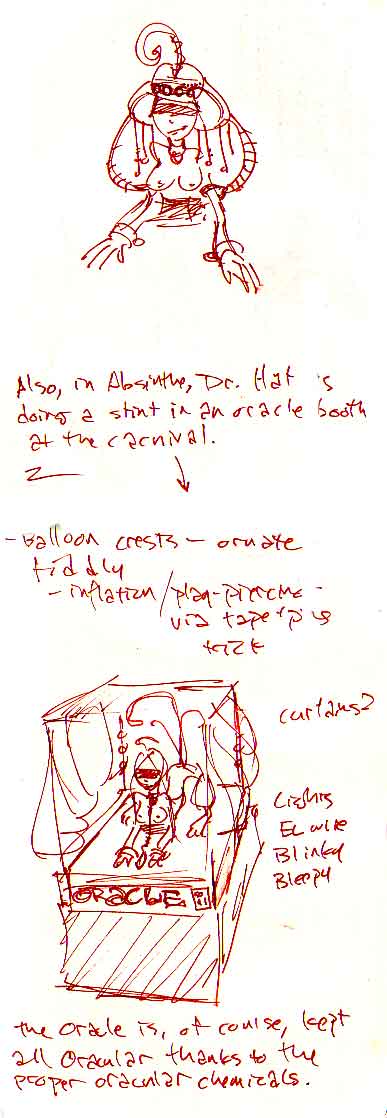 Also, in Absinthe, Dr. Hat is
doing a stint in an oracle booth
at the carnival.
- Balloon crests - ornate
fiddly
- inflation/play-piercing -
via tape + pins
trick
curtains?
Lights
EL wire
Blinky
Bleepy
ORACLE
the oracle is, of course, kept
all oracular thanks to the
proper oracular chemicals.